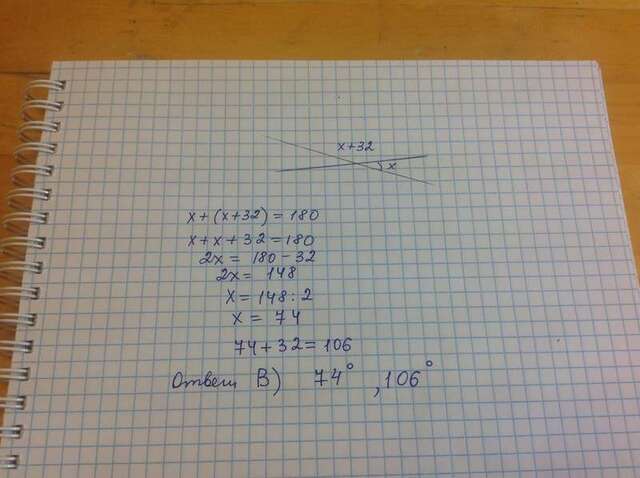 x+32
x
x+(x+32)=180
x+x+32=180
2x= 180-32
2x= 148
x=148:2
x = 74
74+32=106
Ответ В) 74° ,106°